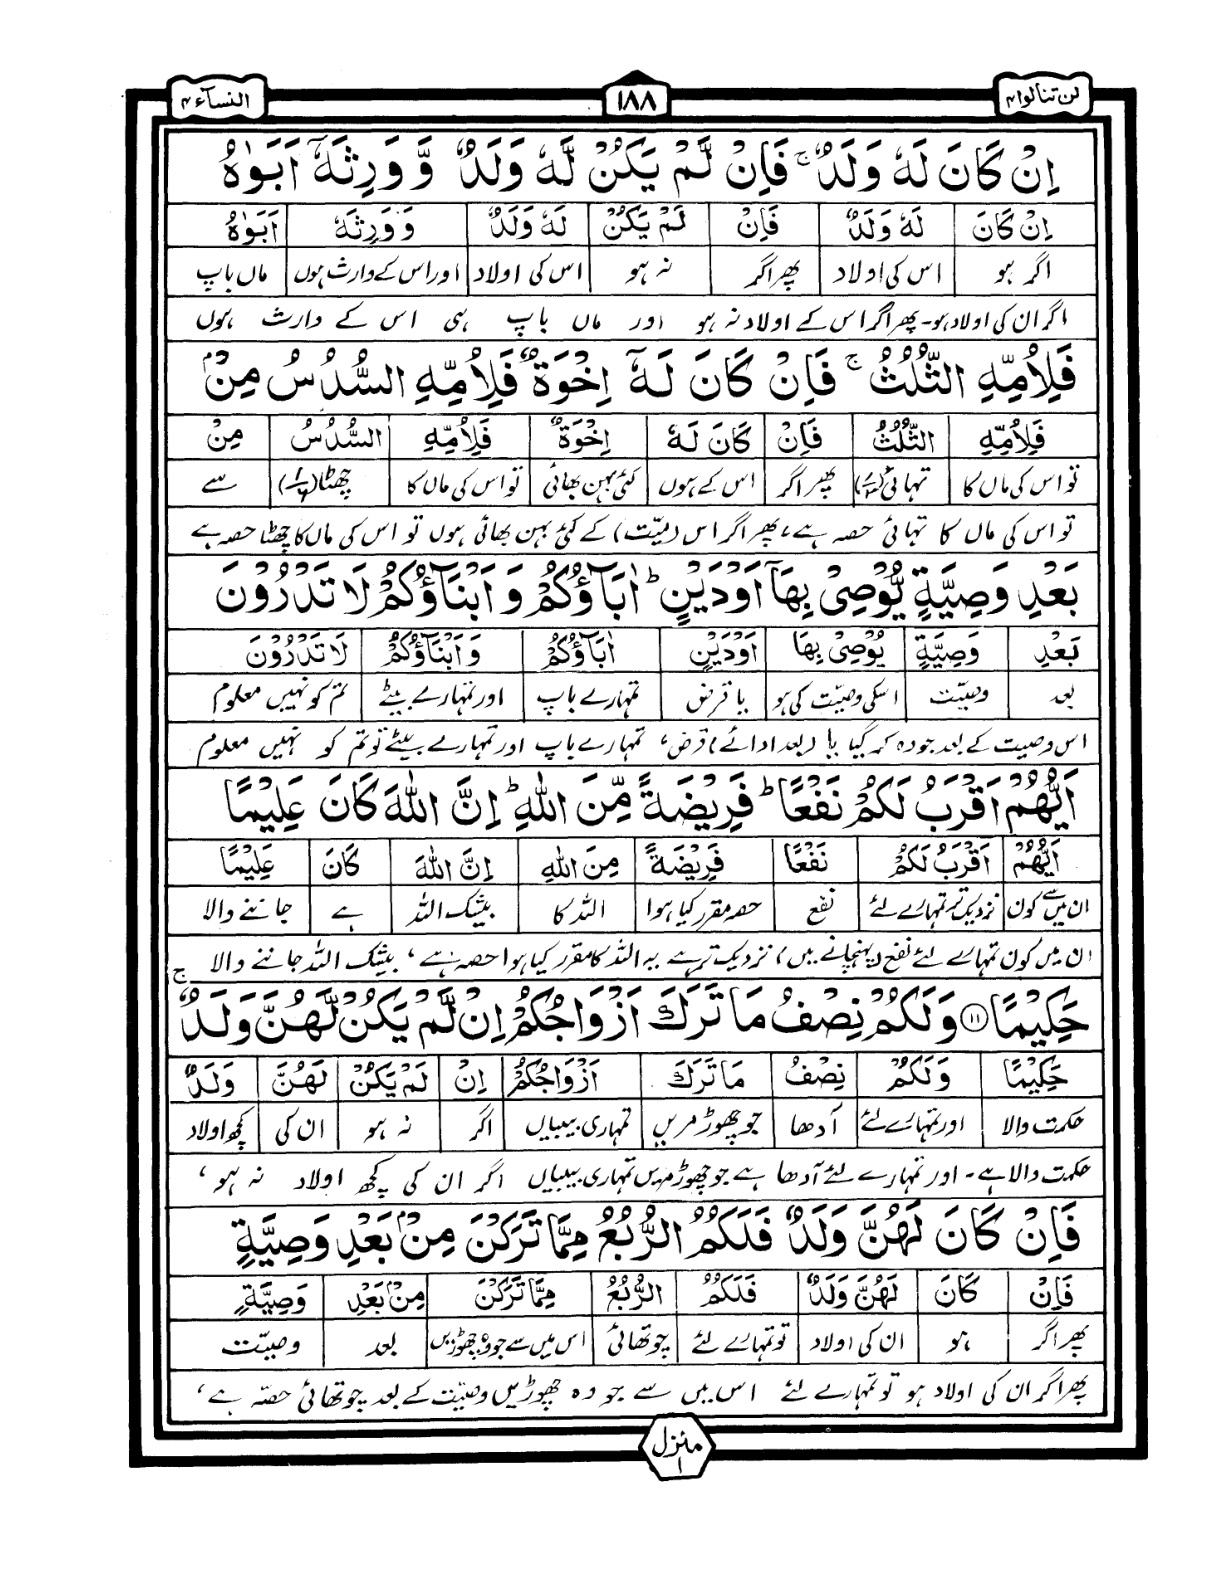 لن تنالوا ۴ ١٨٨ النسآء ۴
اِنْ كَانَ لَهٗ وَلَدٌ ۚ فَاِنْ لَّمْ يَكُنْ لَّهٗ وَلَدٌ وَّ وَرِثَهٗٓ اَبَوٰهُ
اِنْ كَانَ لَهٗ وَلَدٌ فَاِنْ لَمْ يَكُنْ لَهٗ وَلَدٌ وَ وَرِثَهٗ اَبَوٰهُ
اگر ہو اس کی اولاد پھر اگر نہ ہو اس کی اولاد اور اس کے وارث ہوں ماں باپ
اگر ان کی اولاد ہو۔ پھر اگر اس کے اولاد نہ ہو اور ماں باپ ہی اس کے وارث ہوں
فَلِاُمِّهِ الثُّلُثُ ۚ فَاِنْ كَانَ لَهٗٓ اِخْوَةٌ فَلِاُمِّهِ السُّدُسُ مِنْۢ
فَلِاُمِّهِ الثُّلُثُ فَاِنْ كَانَ لَهٗ اِخْوَةٌ فَلِاُمِّهِ السُّدُسُ مِنْ
تو اس کی ماں کا تہائی (۱/۳) پھر اگر اس کے ہوں کئی بہن بھائی تو اس کی ماں کا چھٹا (۱/۶) سے
تو اس کی ماں کا تہائی حصہ ہے، پھر اگر اس (میّت) کے کئی بہن بھائی ہوں تو اس کی ماں کا چھٹا حصہ ہے
بَعْدِ وَصِيَّةٍ يُّوْصِيْ بِهَآ اَوْ دَيْنٍ ؕ اٰبَآؤُكُمْ وَ اَبْنَآؤُكُمْ لَا تَدْرُوْنَ
بَعْدِ وَصِيَّةٍ يُوْصِيْ بِهَا اَوْ دَيْنٍ اٰبَآؤُكُمْ وَ اَبْنَآؤُكُمْ لَا تَدْرُوْنَ
بعد وصیّت اسکی وصیّت کی ہو یا قرض تمہارے باپ اور تمہارے بیٹے تم کو نہیں معلوم
اس وصیت کے بعد جو وہ کر گیا یا (بعد ادائے) قرض، تمہارے باپ اور تمہارے بیٹے تو تم کو نہیں معلوم
اَيُّهُمْ اَقْرَبُ لَكُمْ نَفْعًا ؕ فَرِيْضَةً مِّنَ اللّٰهِ ؕ اِنَّ اللّٰهَ كَانَ عَلِيْمًا
اَيُّهُمْ اَقْرَبُ لَكُمْ نَفْعًا فَرِيْضَةً مِنَ اللّٰهِ اِنَّ اللّٰهَ كَانَ عَلِيْمًا
ان میں سے کون نزدیک تر تمہارے لئے نفع حصہ مقرر کیا ہوا اللہ کا بیشک اللہ ہے جاننے والا
ان میں کون تمہارے لئے نفع (پہنچانے میں) نزدیک تر ہے یہ اللہ کا مقرر کیا ہوا حصہ ہے، بیشک اللہ جاننے والا
حَكِيْمًا ۝۱۱ وَلَكُمْ نِصْفُ مَا تَرَكَ اَزْوَاجُكُمْ اِنْ لَّمْ يَكُنْ لَّهُنَّ وَلَدٌ ۚ
حَكِيْمًا وَلَكُمْ نِصْفُ مَا تَرَكَ اَزْوَاجُكُمْ اِنْ لَمْ يَكُنْ لَهُنَّ وَلَدٌ
حکمت والا اور تمہارے لئے آدھا جو چھوڑ مریں تمہاری بیبیاں اگر نہ ہو ان کی کچھ اولاد
حکمت والا ہے۔ اور تمہارے لئے آدھا ہے جو چھوڑ مریں تمہاری بیبیاں اگر ان کی کچھ اولاد نہ ہو،
فَاِنْ كَانَ لَهُنَّ وَلَدٌ فَلَكُمُ الرُّبُعُ مِمَّا تَرَكْنَ مِنْۢ بَعْدِ وَصِيَّةٍ
فَاِنْ كَانَ لَهُنَّ وَلَدٌ فَلَكُمُ الرُّبُعُ مِمَّا تَرَكْنَ مِنْۢ بَعْدِ وَصِيَّةٍ
پھر اگر ہو ان کی اولاد تو تمہارے لئے چوتھائی اس میں سے جو وہ چھوڑیں بعد وصیّت
پھر اگر ان کی اولاد ہو تو تمہارے لئے اس میں سے جو وہ چھوڑیں وصیّت کے بعد چوتھائی حصّہ ہے،
منزل ١